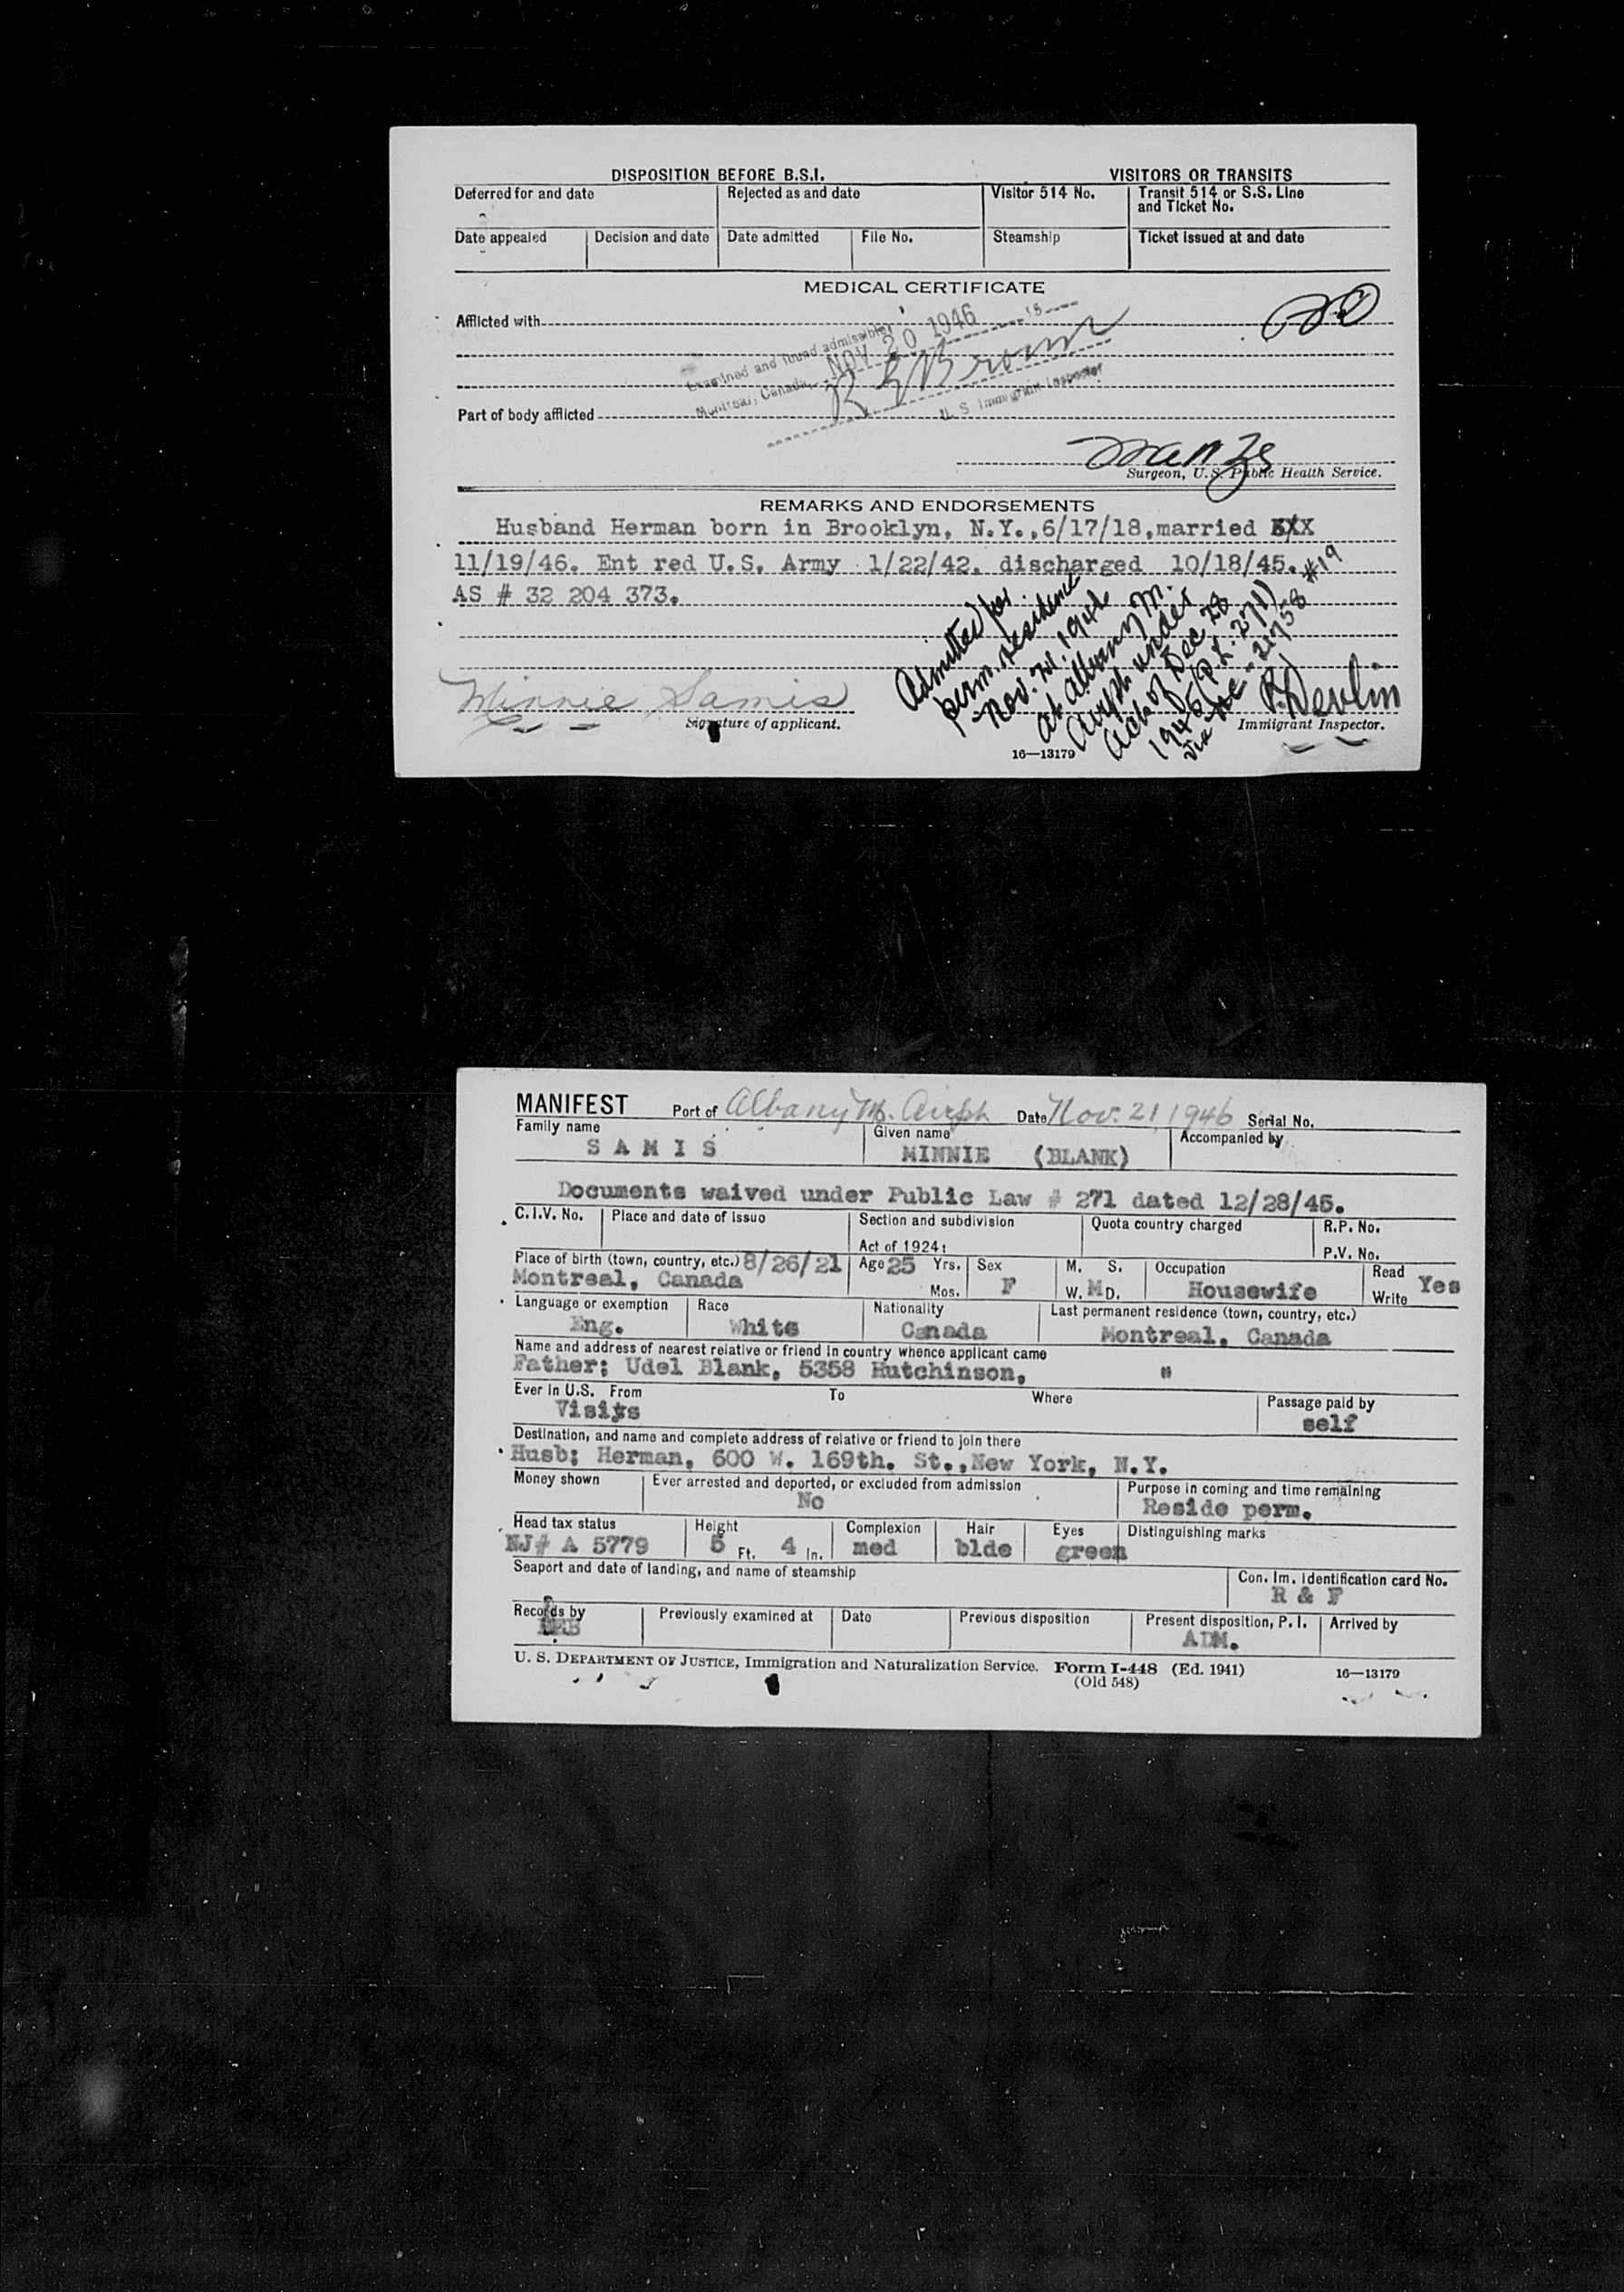 DISPOSITION BEFORE B.S.I. VISITORS OR TRANSITS
Deferred for and date Rejected as and date Visitor 514 No. Transit 514 or S.S. Line and Ticket No.
Date appealed Decision and date Date admitted File No. Steamship Ticket issued at and date
MEDICAL CERTIFICATE
Afflicted with
Examined and found admissible
Montreal, Canada, NOV 20 1946
Brown
U. S. Immigrant Inspector
Part of body afflicted
Surgeon, U.S. Public Health Service.
REMARKS AND ENDORSEMENTS
Husband Herman born in Brooklyn, N.Y.,6/17/18,married
11/19/46. Ent red U.S. Army 1/22/42. discharged 10/18/45.
AS # 32 204 373.
Admitted for
perm. residence
Nov. 21, 1946
at Albany M.
Airpt. under
Act of Dec 28
1945 (P.L. 271)
#19
Minnie Samis
Signature of applicant.
Devlin
Immigrant Inspector.
16—13179
MANIFEST Port of Albany M. Airpt Date Nov. 21, 1946 Serial No.
Family name Given name Accompanied by
S A M I S MINNIE (BLANK)
Documents waived under Public Law # 271 dated 12/28/45.
C.I.V. No. Place and date of issue Section and subdivision Quota country charged R.P. No.
Act of 1924: P.V. No.
Place of birth (town, country, etc.) 8/26/21 Age 25 Yrs. Sex M. S. Occupation Read Yes
Montreal, Canada Mos. F W. M D. Housewife Write
Language or exemption Race Nationality Last permanent residence (town, country, etc.)
Eng. White Canada Montreal, Canada
Name and address of nearest relative or friend in country whence applicant came
Father; Udel Blank, 5358 Hutchinson, "
Ever in U.S. From To Where Passage paid by
Visits self
Destination, and name and complete address of relative or friend to join there
Husb; Herman, 600 W. 169th. St.,New York, N.Y.
Money shown Ever arrested and deported, or excluded from admission Purpose in coming and time remaining
No Reside perm.
Head tax status Height Complexion Hair Eyes Distinguishing marks
NJ# A 5779 5 Ft. 4 In. med blde green
Seaport and date of landing, and name of steamship Con. Im. Identification card No.
R & F
Records by Previously examined at Date Previous disposition Present disposition, P. I. Arrived by
ADM.
U. S. DEPARTMENT OF JUSTICE, Immigration and Naturalization Service. Form I-448 (Ed. 1941) 16—13179
(Old 548)